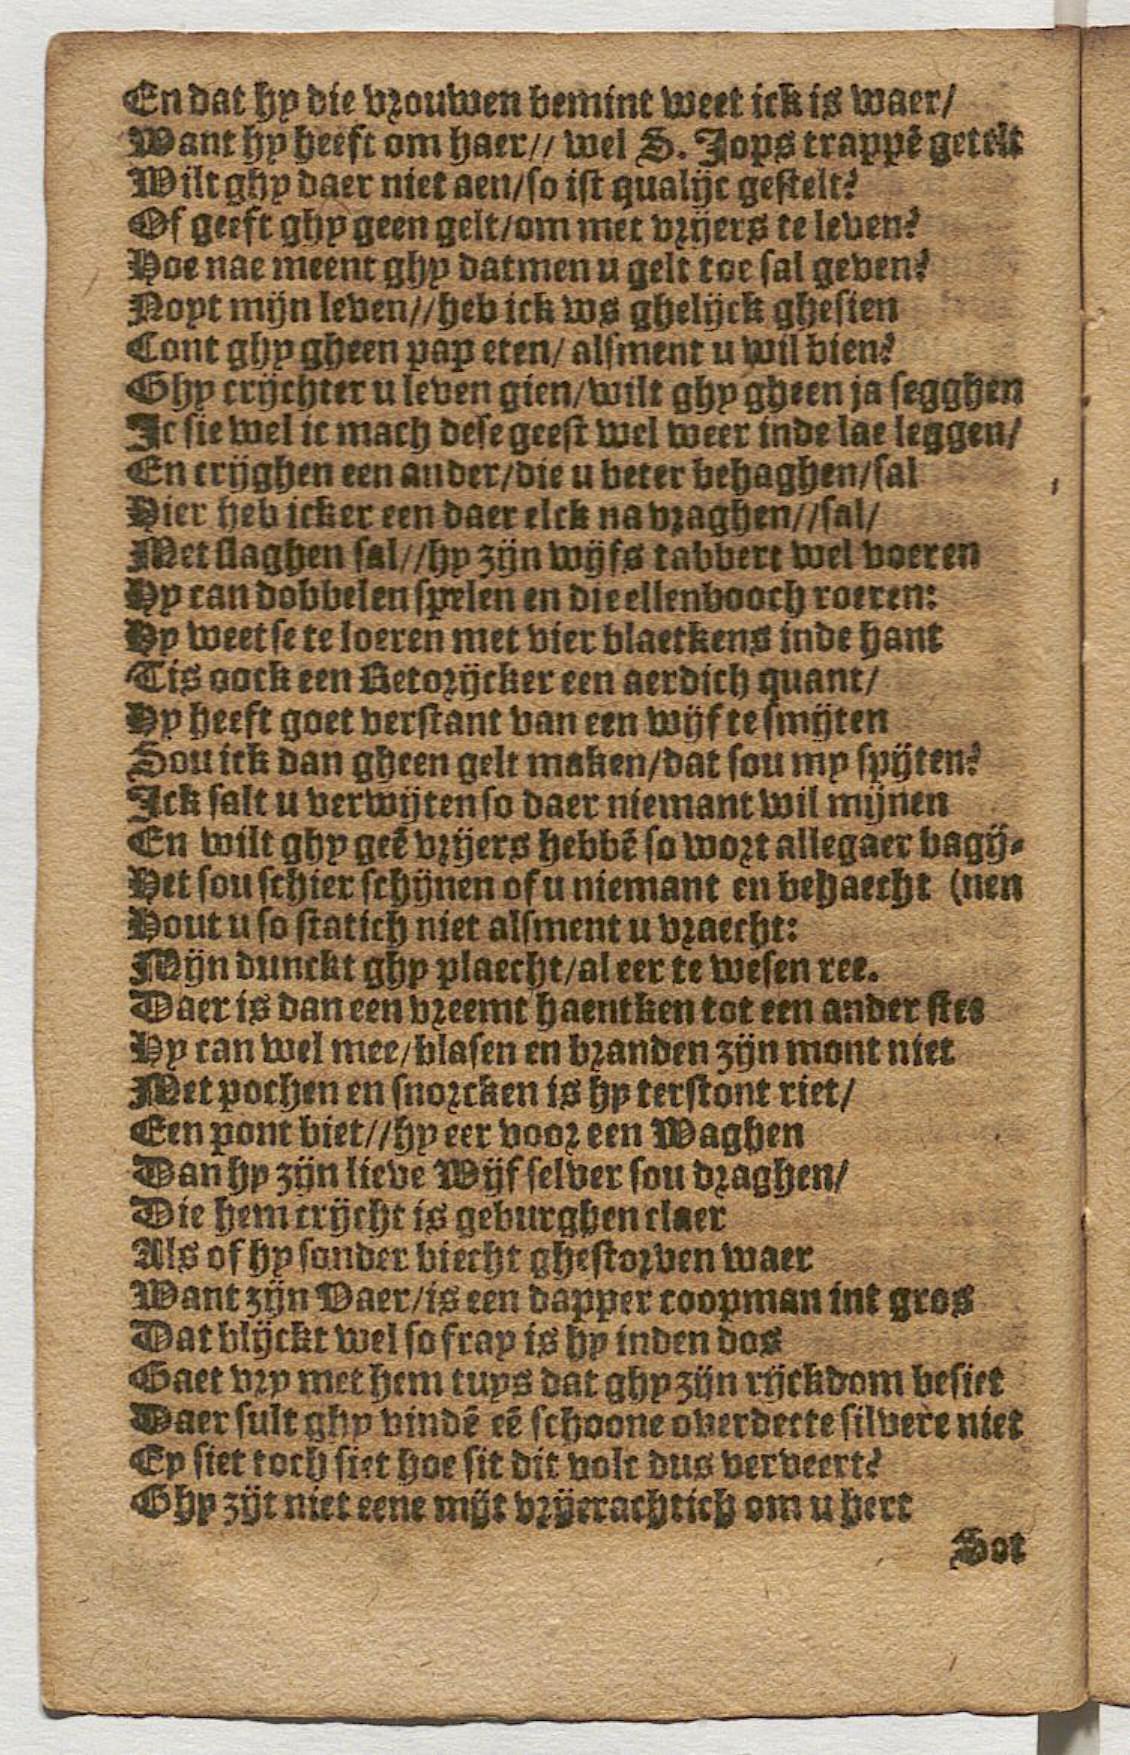 En dat hy die vrouwen bemint weet ick is waer/
Want hy heeft om haer// wel S. Jops trappē getelt
Wilt ghy daer niet aen/so ist qualijc gestelt?
Of geeft ghy geen gelt/om met vrijers te leven?
Hoe nae meent ghy datmen u gelt toe sal geven?
Noyt mijn leven//heb ick ws ghelijck ghesien
Cont ghy gheen pap eten/ alsment u wil bien?
Ghy crijchter u leven gien/wilt ghy gheen ja segghen
Ic sie wel ic mach dese geest wel weer inde lae leggen/
En crijghen een ander/die u beter behaghen/sal
Hier heb icker een daer elck na vraghen//sal/
Met slaghen sal//hy zijn wijfs tabbert wel voeren
Hy can dobbelen spelen en die ellenbooch roeren:
Hy weet se te loeren met vier blaetkens inde hant
Tis oock een Retorijcker een aerdich quant/
Hy heeft goet verstant van een wijf te smijten
Sou ick dan gheen gelt maken/dat sou my spijten?
Ick salt u verwijten so daer niemant wil mijnen
En wilt ghy geē vrijers hebbē so wort allegaer bagij-
Het sou schier schijnen of u niemant en behaecht (nen
Hout u so statich niet alsment u vraecht:
Mijn dunckt ghy plaecht/al eer te wesen ree.
Daer is dan een vreemt haentken tot een ander stee
Hy can wel mee/blasen en branden zijn mont niet
Met pochen en snorcken is hy terstont riet/
Een pont biet//hy eer voor een Waghen
Dan hy zijn lieve Wijf selver sou draghen/
Die hem crijcht is geburghen claer
Als of hy sonder biecht ghestorven waer
Want zijn Vaer/is een dapper coopman int gros
Dat blijckt wel so fray is hy inden dos
Gaet vry met hem tuys dat ghy zijn rijckdom besiet
Daer sult ghy vindē eē schoone overdecte silvere niet
Ey siet toch siet hoe sit dit volc dus verveert?
Ghy zijt niet eene mijt vrijerachtich om u hert
Sot